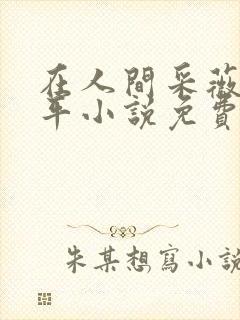 在人間采薇
年小說免費
朱某想寫小說